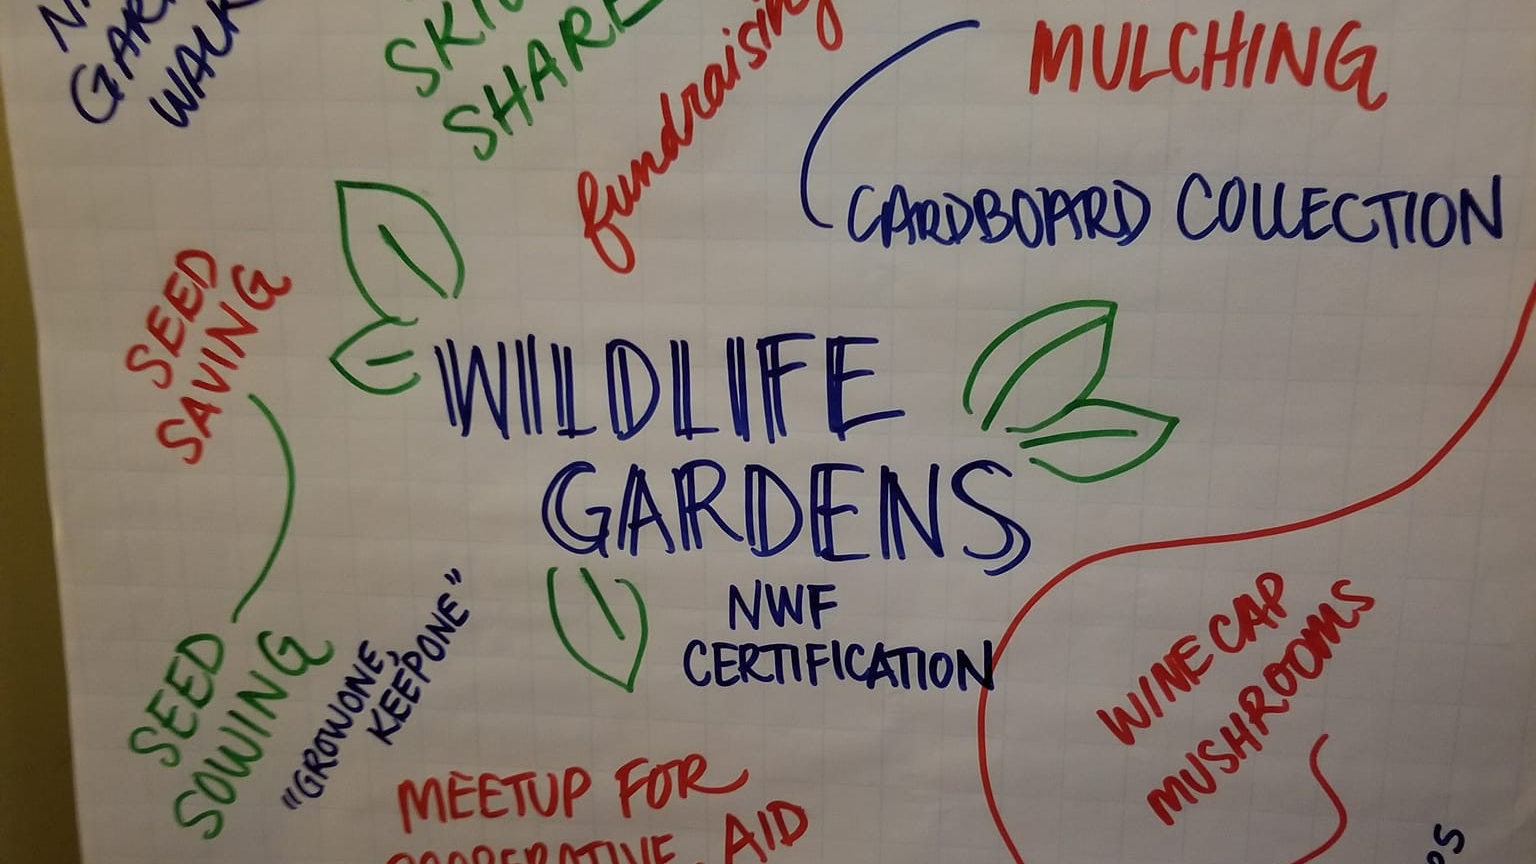 WALK
SHARE
fundraising
MULCHING
CARDBOARD COLLECTION
SEED
SAVING
WILDLIFE
GARDENS
NWF
CERTIFICATION
SEED
SOWING
"GROW ONE,
KEEP ONE"
WINE CAP
MUSHROOMS
MEETUP FOR
COOPERATIVE AID